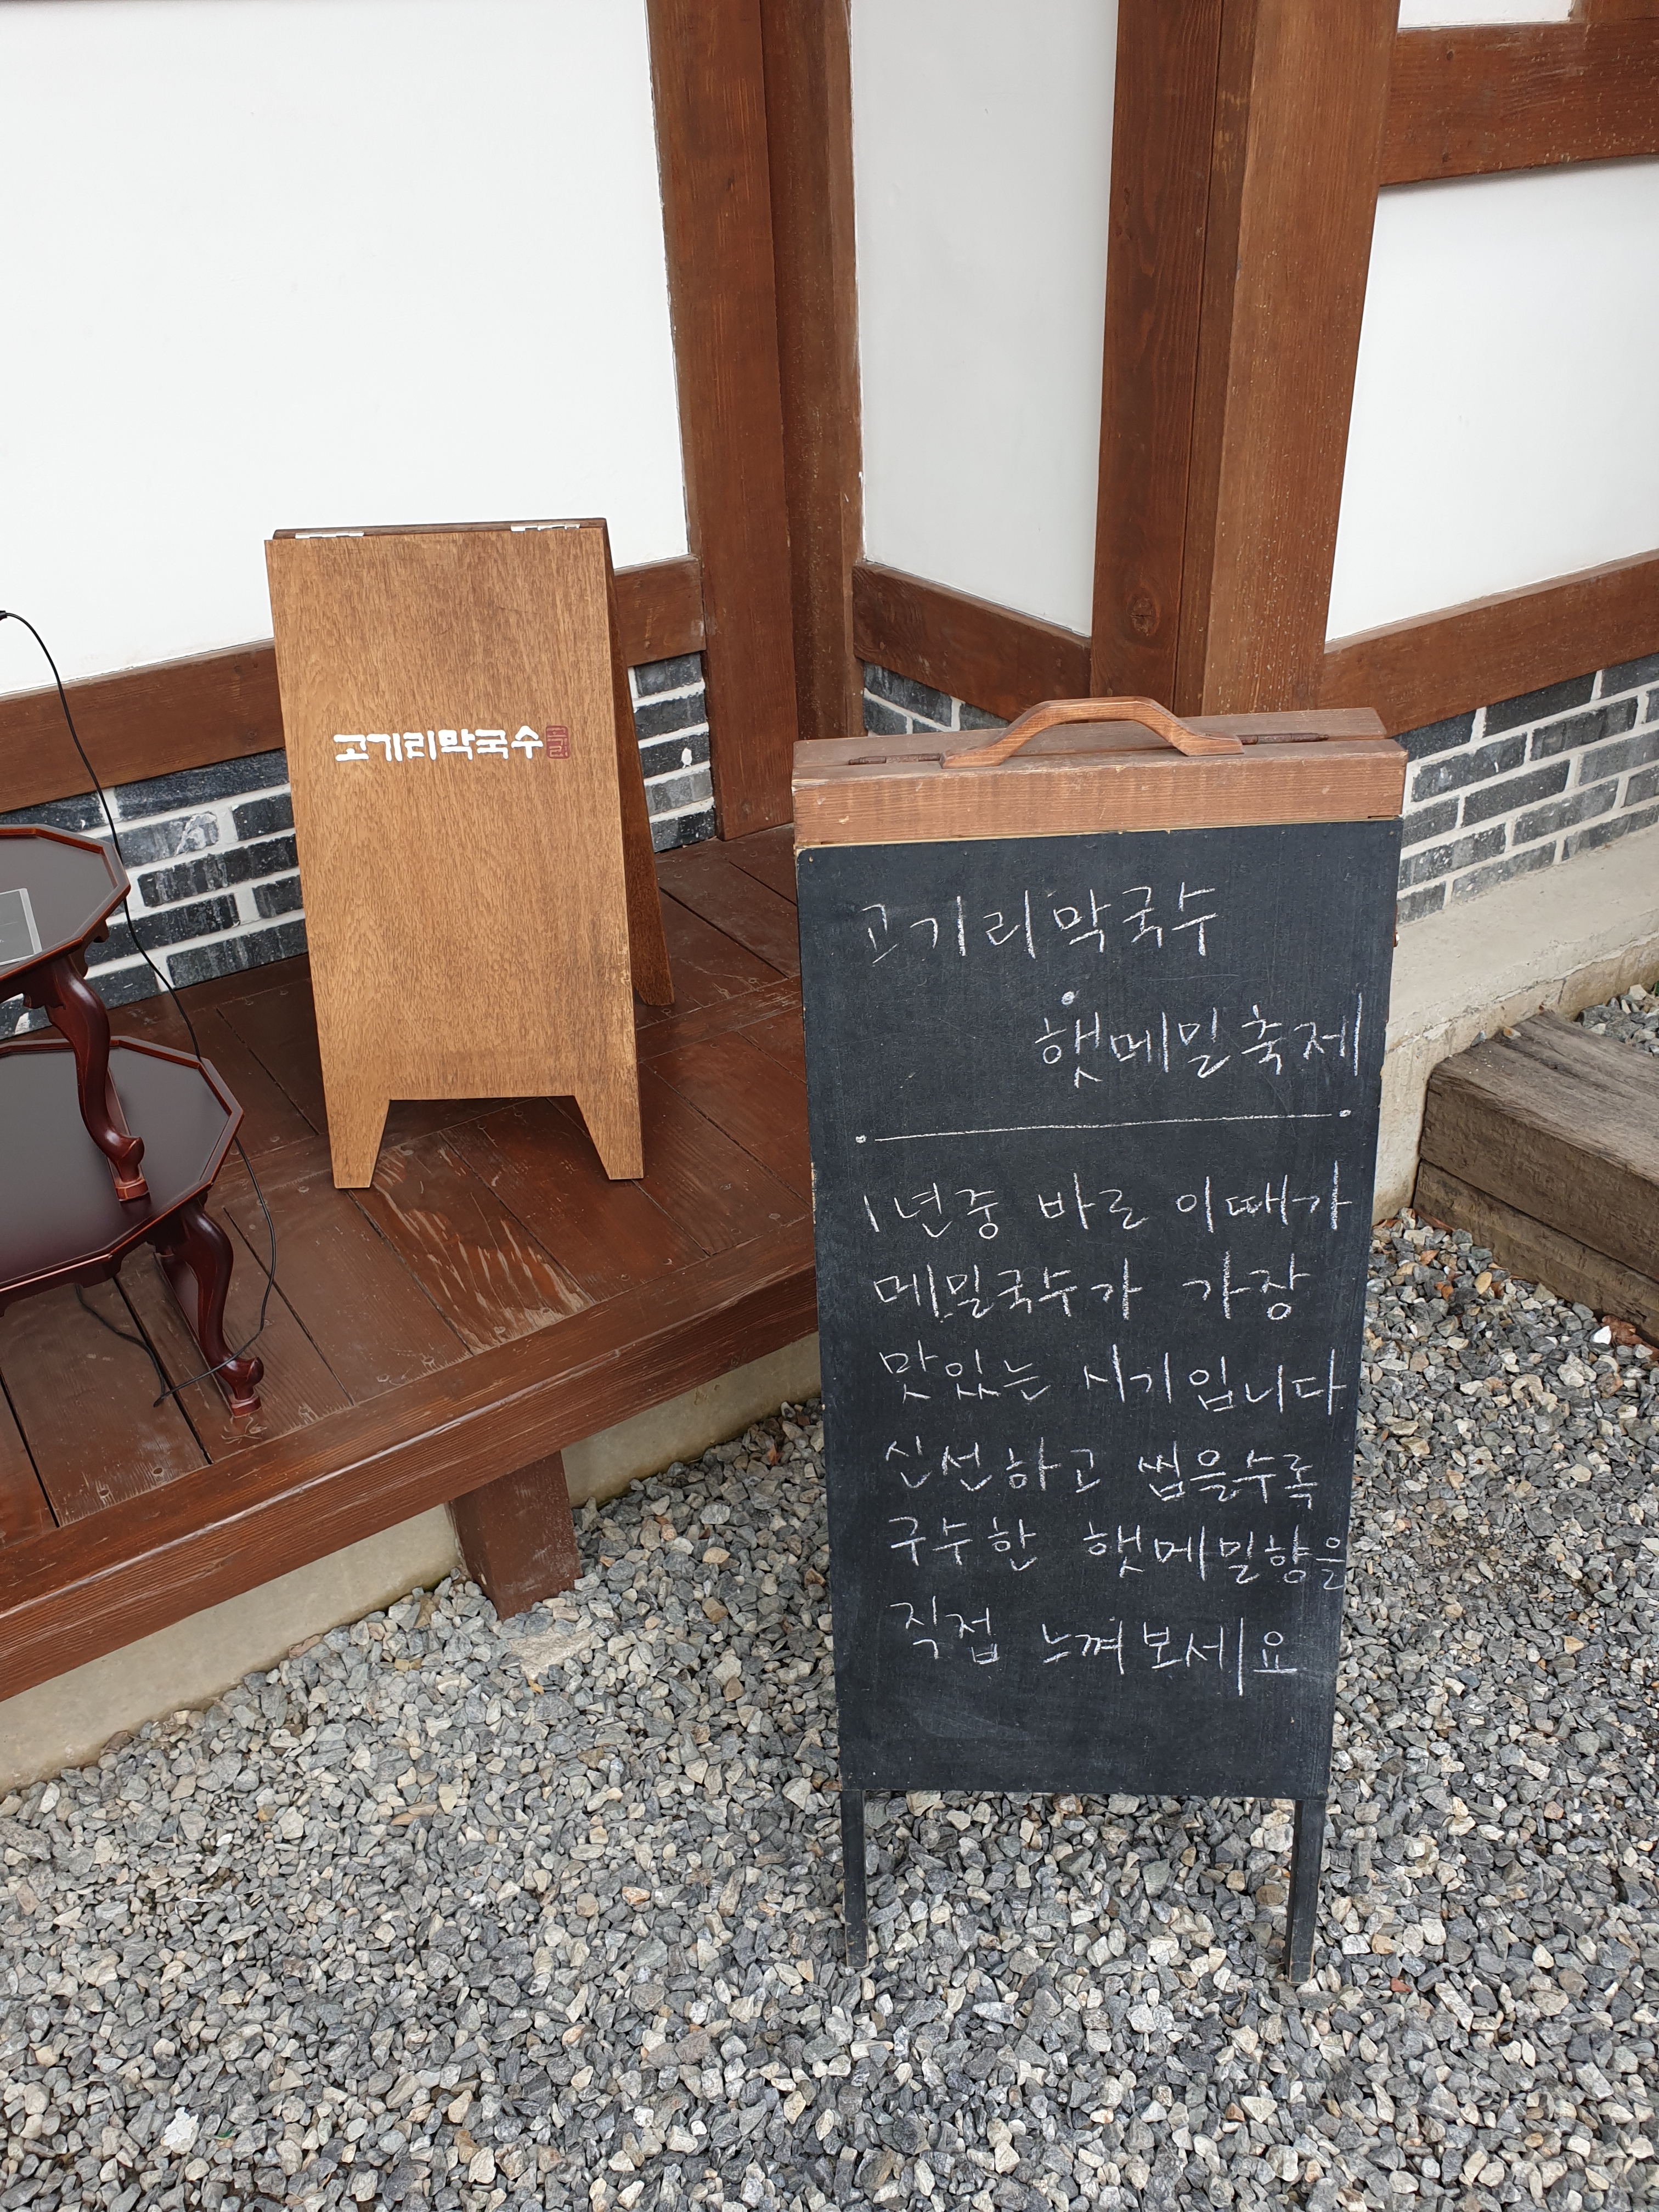 고기리막국수
고기리막국수
햇메밀축제
1년중 바로 이때가
메밀국수가 가장
맛있는 시기입니다
신선하고 씹을수록
구수한 햇메밀향을
직접 느껴보세요